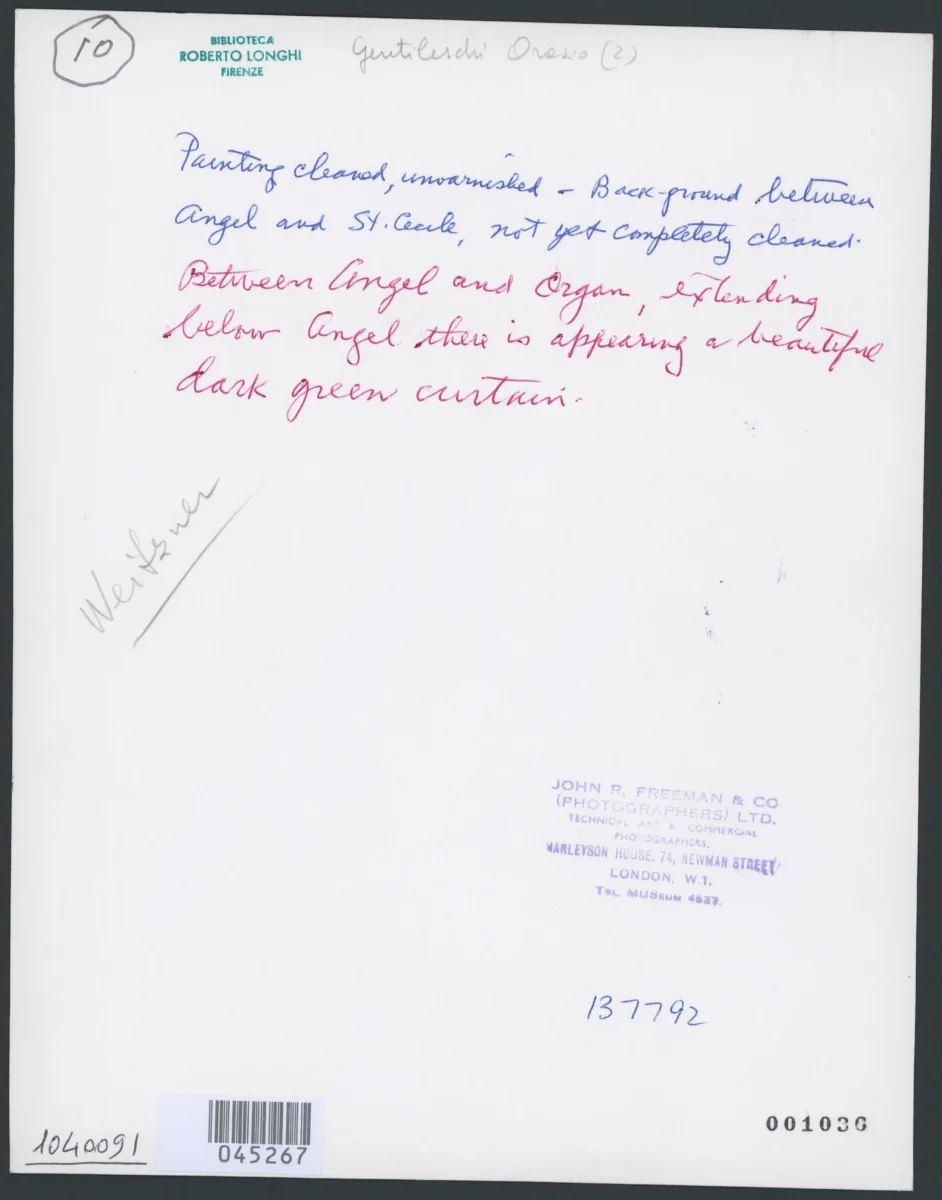 10
BIBLIOTECA
ROBERTO LONGHI
FIRENZE
Gentileschi Orazio (2)
Painting cleaned, unvarnished - Back-ground between
Angel and St. Cecile, not yet completely cleaned.
Between Angel and Organ, extending
below Angel there is appearing a beautiful
dark green curtain.
Weitzner
JOHN R. FREEMAN & CO.
(PHOTOGRAPHERS) LTD.
TECHNICAL ART & COMMERCIAL
PHOTOGRAPHERS,
HARLEYSON HOUSE. 74, NEWMAN STREET
LONDON, W.1.
TEL. MUSEUM
137792
001036
1040091
045267